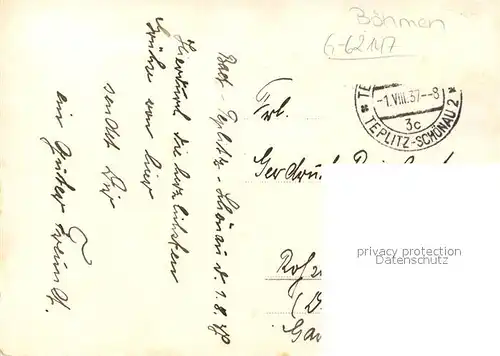 Böhmen
G-62147
-1.VIII.37--8
3c
* TEPLITZ-SCHÖNAU 2 *
Bad-Teplitz-Schönau d 1.8.37
Hierdurch die herzlichsten
Grüße von hier
sendet Dir
ein guter Freund.
Frl.
Gerdrud
privacy protection
Datenschutz